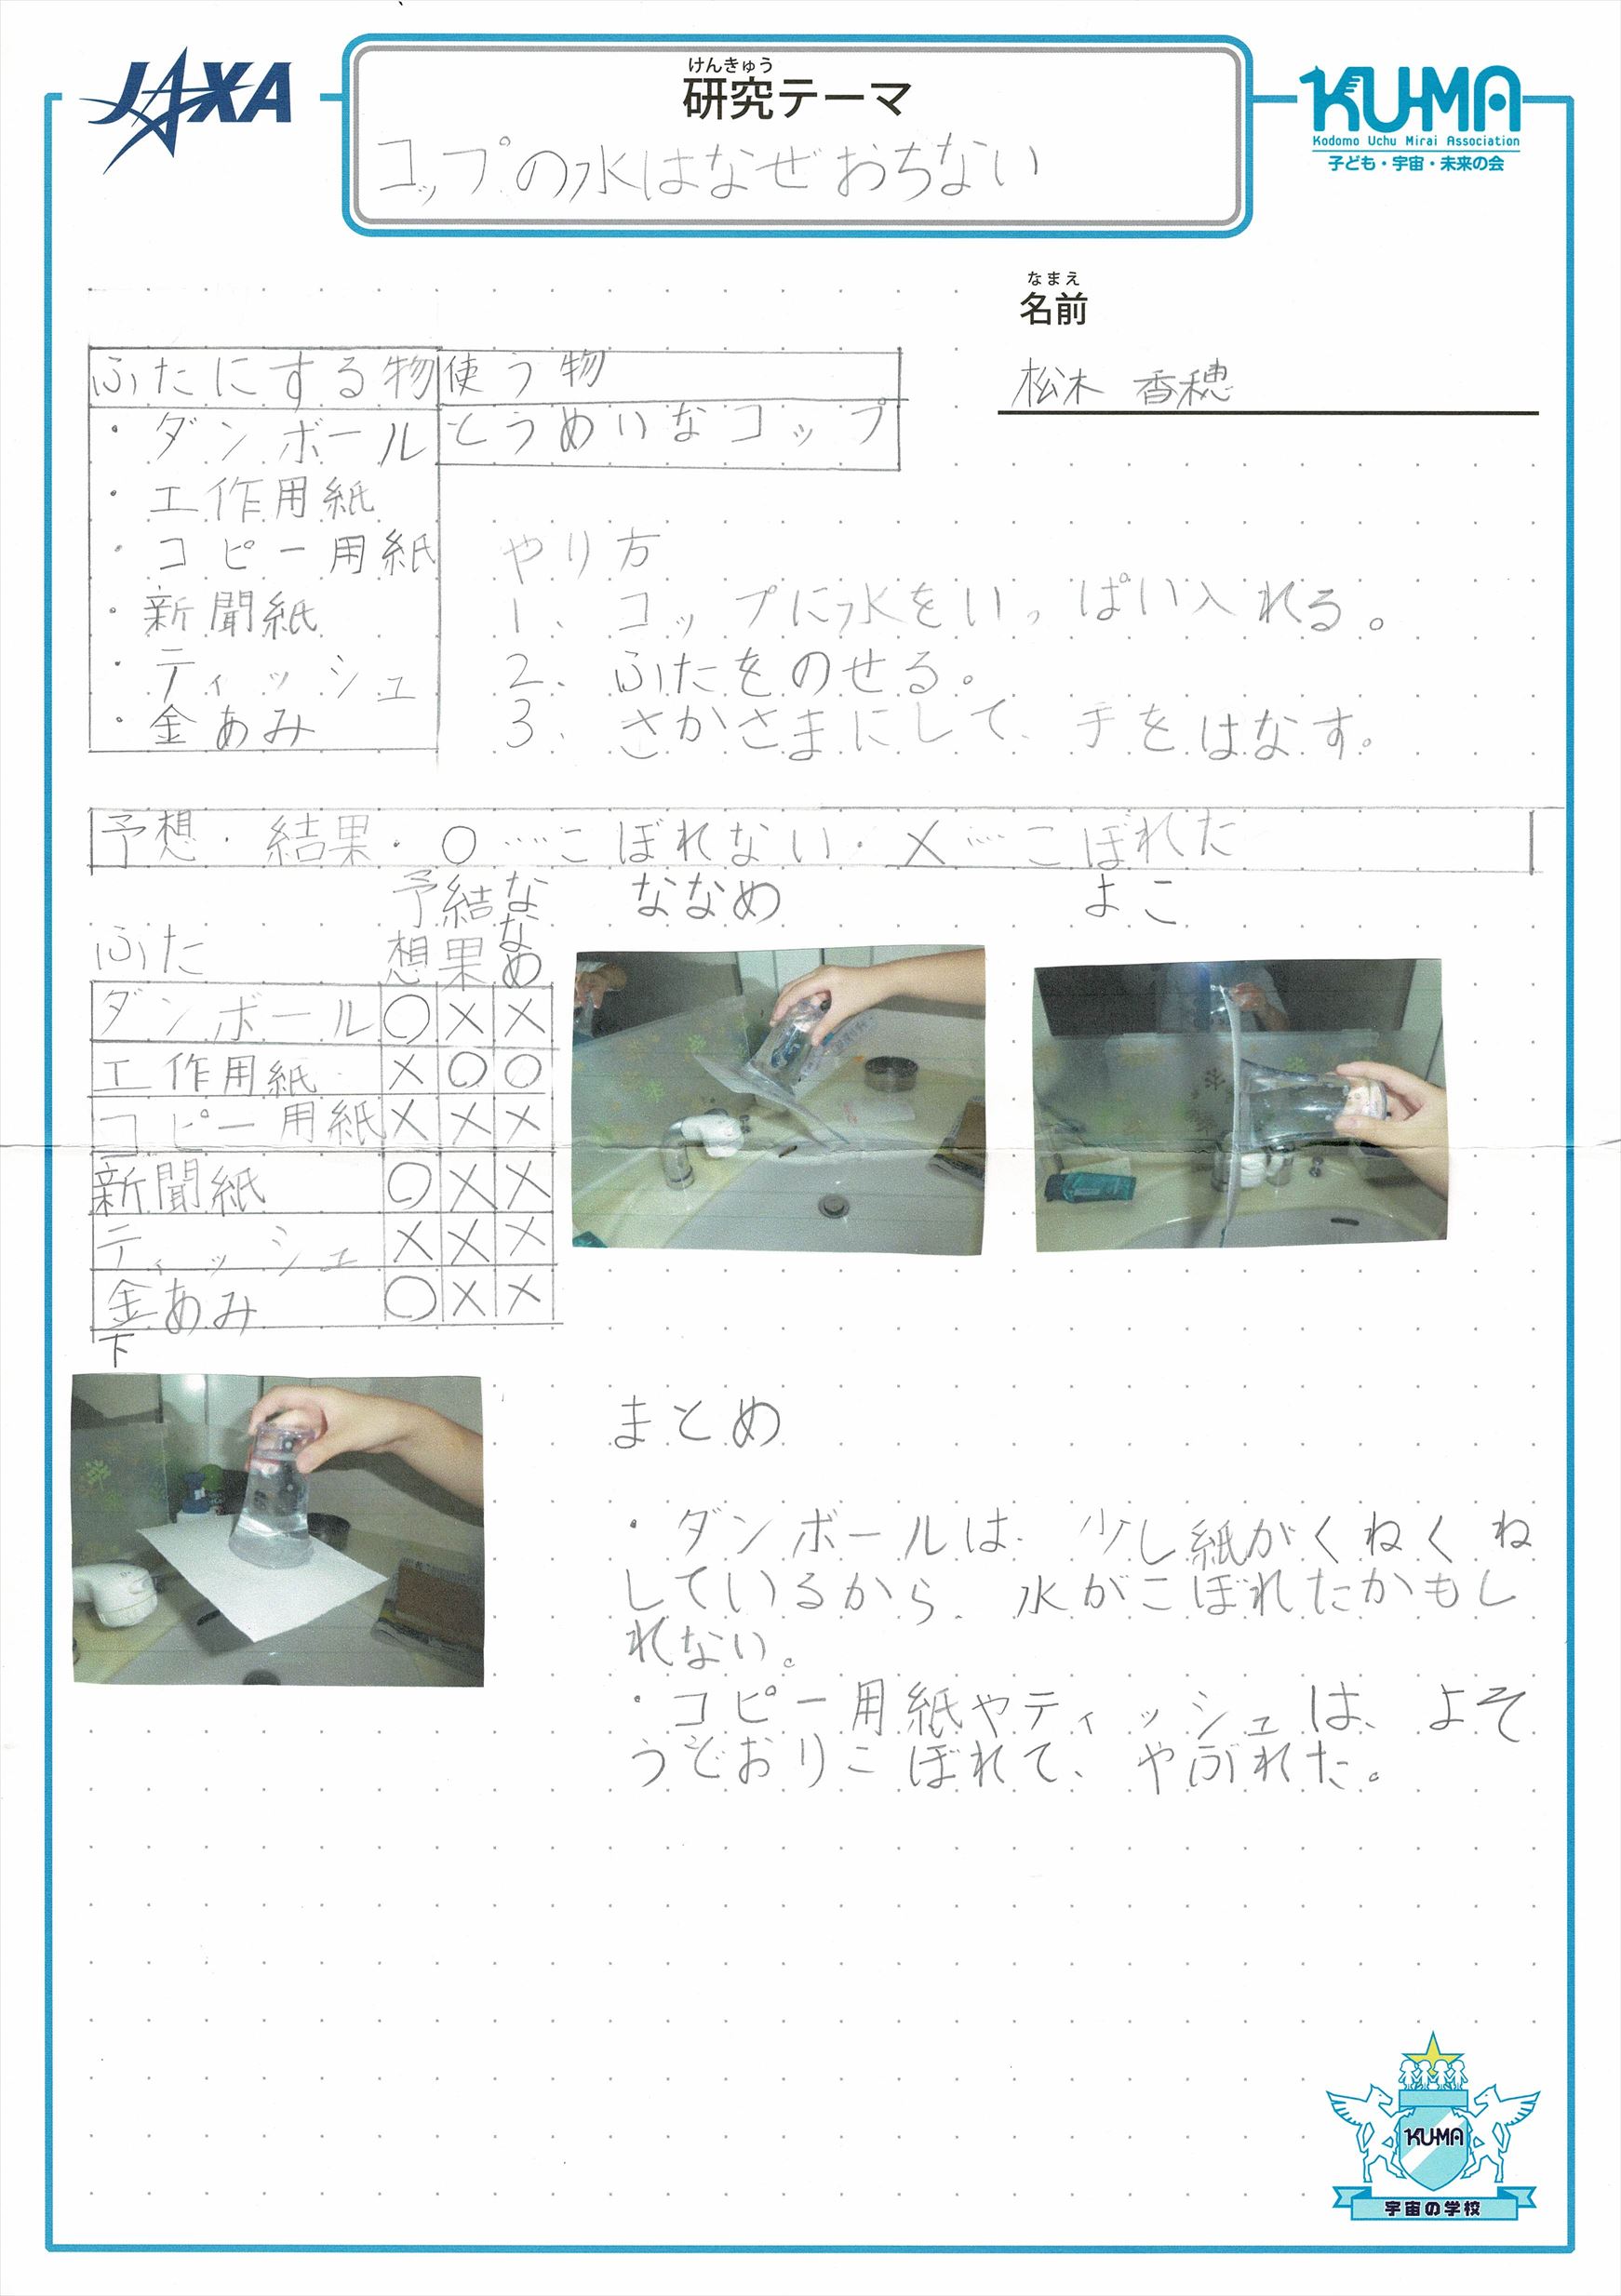 JAXA
けんきゅう
研究テーマ
コップの水はなぜおちない
KU-MA
Kodomo Uchu Mirai Association
子ども・宇宙・未来の会
なまえ
名前
松木 香穂
ふたにする物
・ダンボール
・工作用紙
・コピー用紙
・新聞紙
・ティッシュ
・金あみ
使う物
とうめいなコップ
やり方
1、コップに水をいっぱい入れる。
2、ふたをのせる。
3、さかさまにして、手をはなす。
予想・結果・○……こぼれない・×……こぼれた
ふた 予想 結果 ななめ
ダンボール ○ × ×
工作用紙 × ○ ○
コピー用紙 × × ×
新聞紙 ○ × ×
ティッシュ × × ×
金あみ ○ × ×
ななめ
よこ
下
まとめ
・ダンボールは、少し紙がくねくね
しているから、水がこぼれたかもし
れない。
・コピー用紙やティッシュは、よそ
うどおりこぼれて、やぶれた。
KU-MA
宇宙の学校